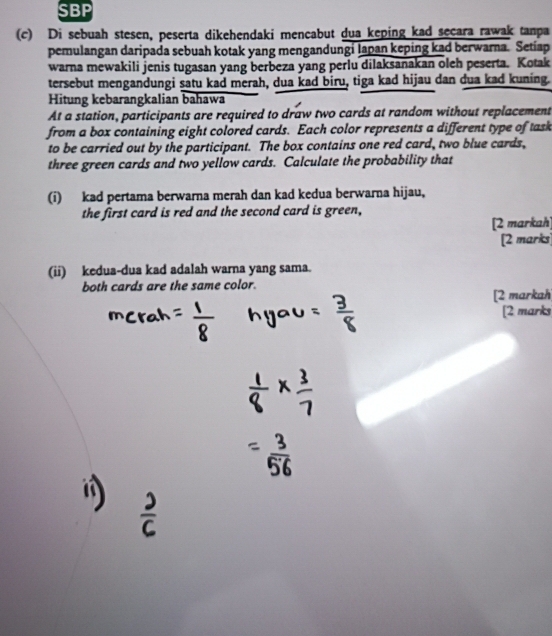 SBP
(c) Di sebuah stesen, peserta dikehendaki mencabut dua keping kad secara rawak tanpa
pemulangan daripada sebuah kotak yang mengandungi lapan keping kad berwarna. Setiap
warna mewakili jenis tugasan yang berbeza yang perlu dilaksanakan oleh peserta. Kotak
tersebut mengandungi satu kad merah, dua kad biru, tiga kad hijau dan dua kad kuning.
Hitung kebarangkalian bahawa
At a station, participants are required to draw two cards at random without replacement
from a box containing eight colored cards. Each color represents a different type of task
to be carried out by the participant. The box contains one red card, two blue cards,
three green cards and two yellow cards. Calculate the probability that
(i) kad pertama berwarna merah dan kad kedua berwarna hijau,
the first card is red and the second card is green,
[2 markah]
[2 marks]
(ii) kedua-dua kad adalah warna yang sama.
both cards are the same color.
[2 markah
[2 marks
merah = 1/8 hyau = 3/8
1/8 × 3/7
= 3/56
ii)